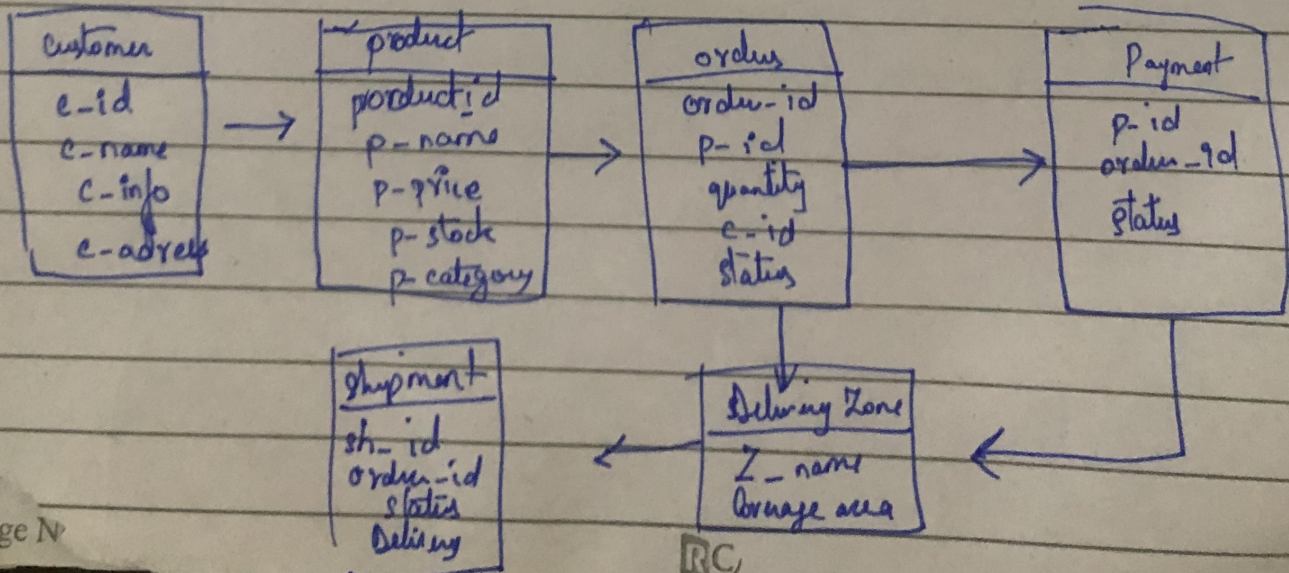 customer
c_id
c-name
C-info
c-adress
product
porductid
p-name
p-price
p-stock
p-category
orders
order-id
p-id
quantity
c-id
status
Payment
p-id
order_id
status
Shipment
sh_id
order_id
status
Delivery
Delivery Zone
Z_name
Corvage area
ge N
RC,